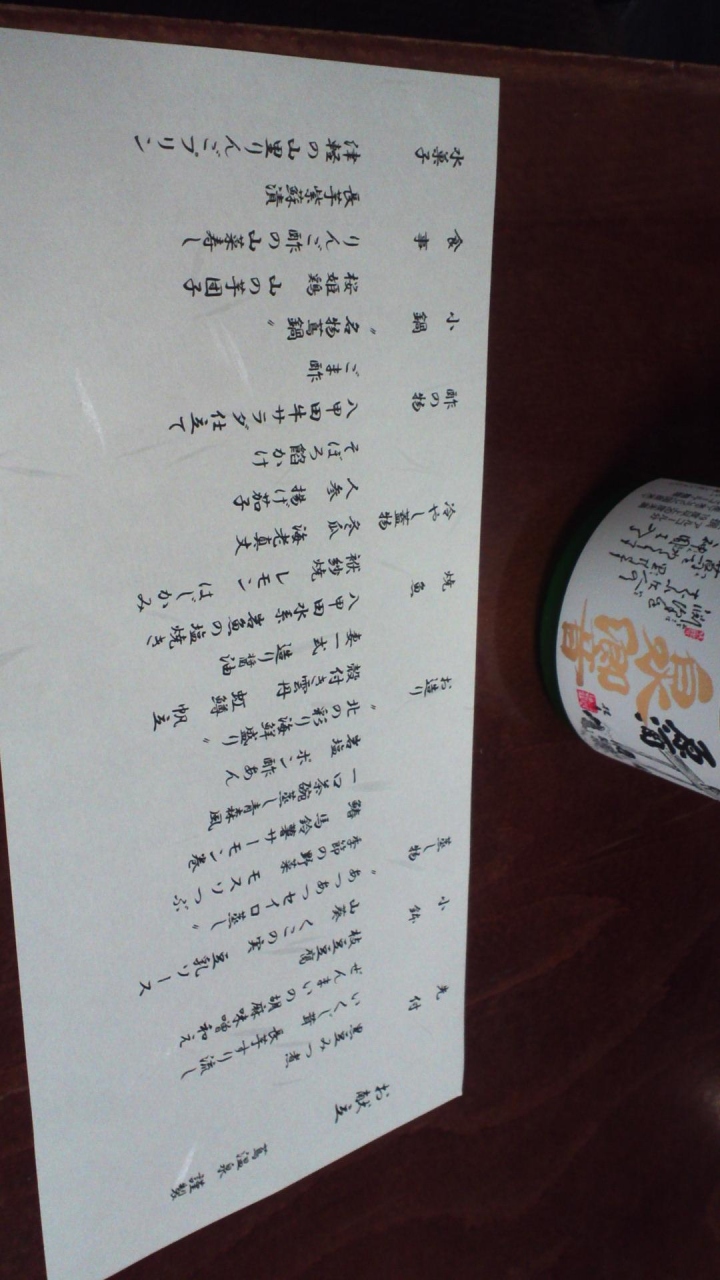 蔦温泉 謹製
お献立
先付
黒豆みつ煮
いくじ茸 長芋すり流し
ぜんまいの胡麻味噌和え
小鉢
枝豆豆腐 豆乳ソース
山葵 くこの実
蒸し物
〝あつあつセイロ蒸し〟
季節の野菜
鰆 馬鈴薯サーモン巻
一口茶碗蒸し青森風
岩塩 ポン酢あん
お造り
〝北の彩り海鮮盛り〟
虹鱒 帆立
殻付き雲丹
妻一式 造り醤油
焼魚
八甲田水系岩魚の塩焼き
袱紗焼 レモン はじかみ
冷やし蓋物
冬瓜 海老真丈
人参 揚げ茄子
そぼろ餡かけ
酢の物
八甲田牛サラダ仕立て
ごま酢
小鍋
〝名物蔦鍋〟
桜姫鶏 山の芋団子
食事
りんご酢の山菜寿し
長芋紫蘇漬
水菓子
津軽の山里りんごプリン
原酒